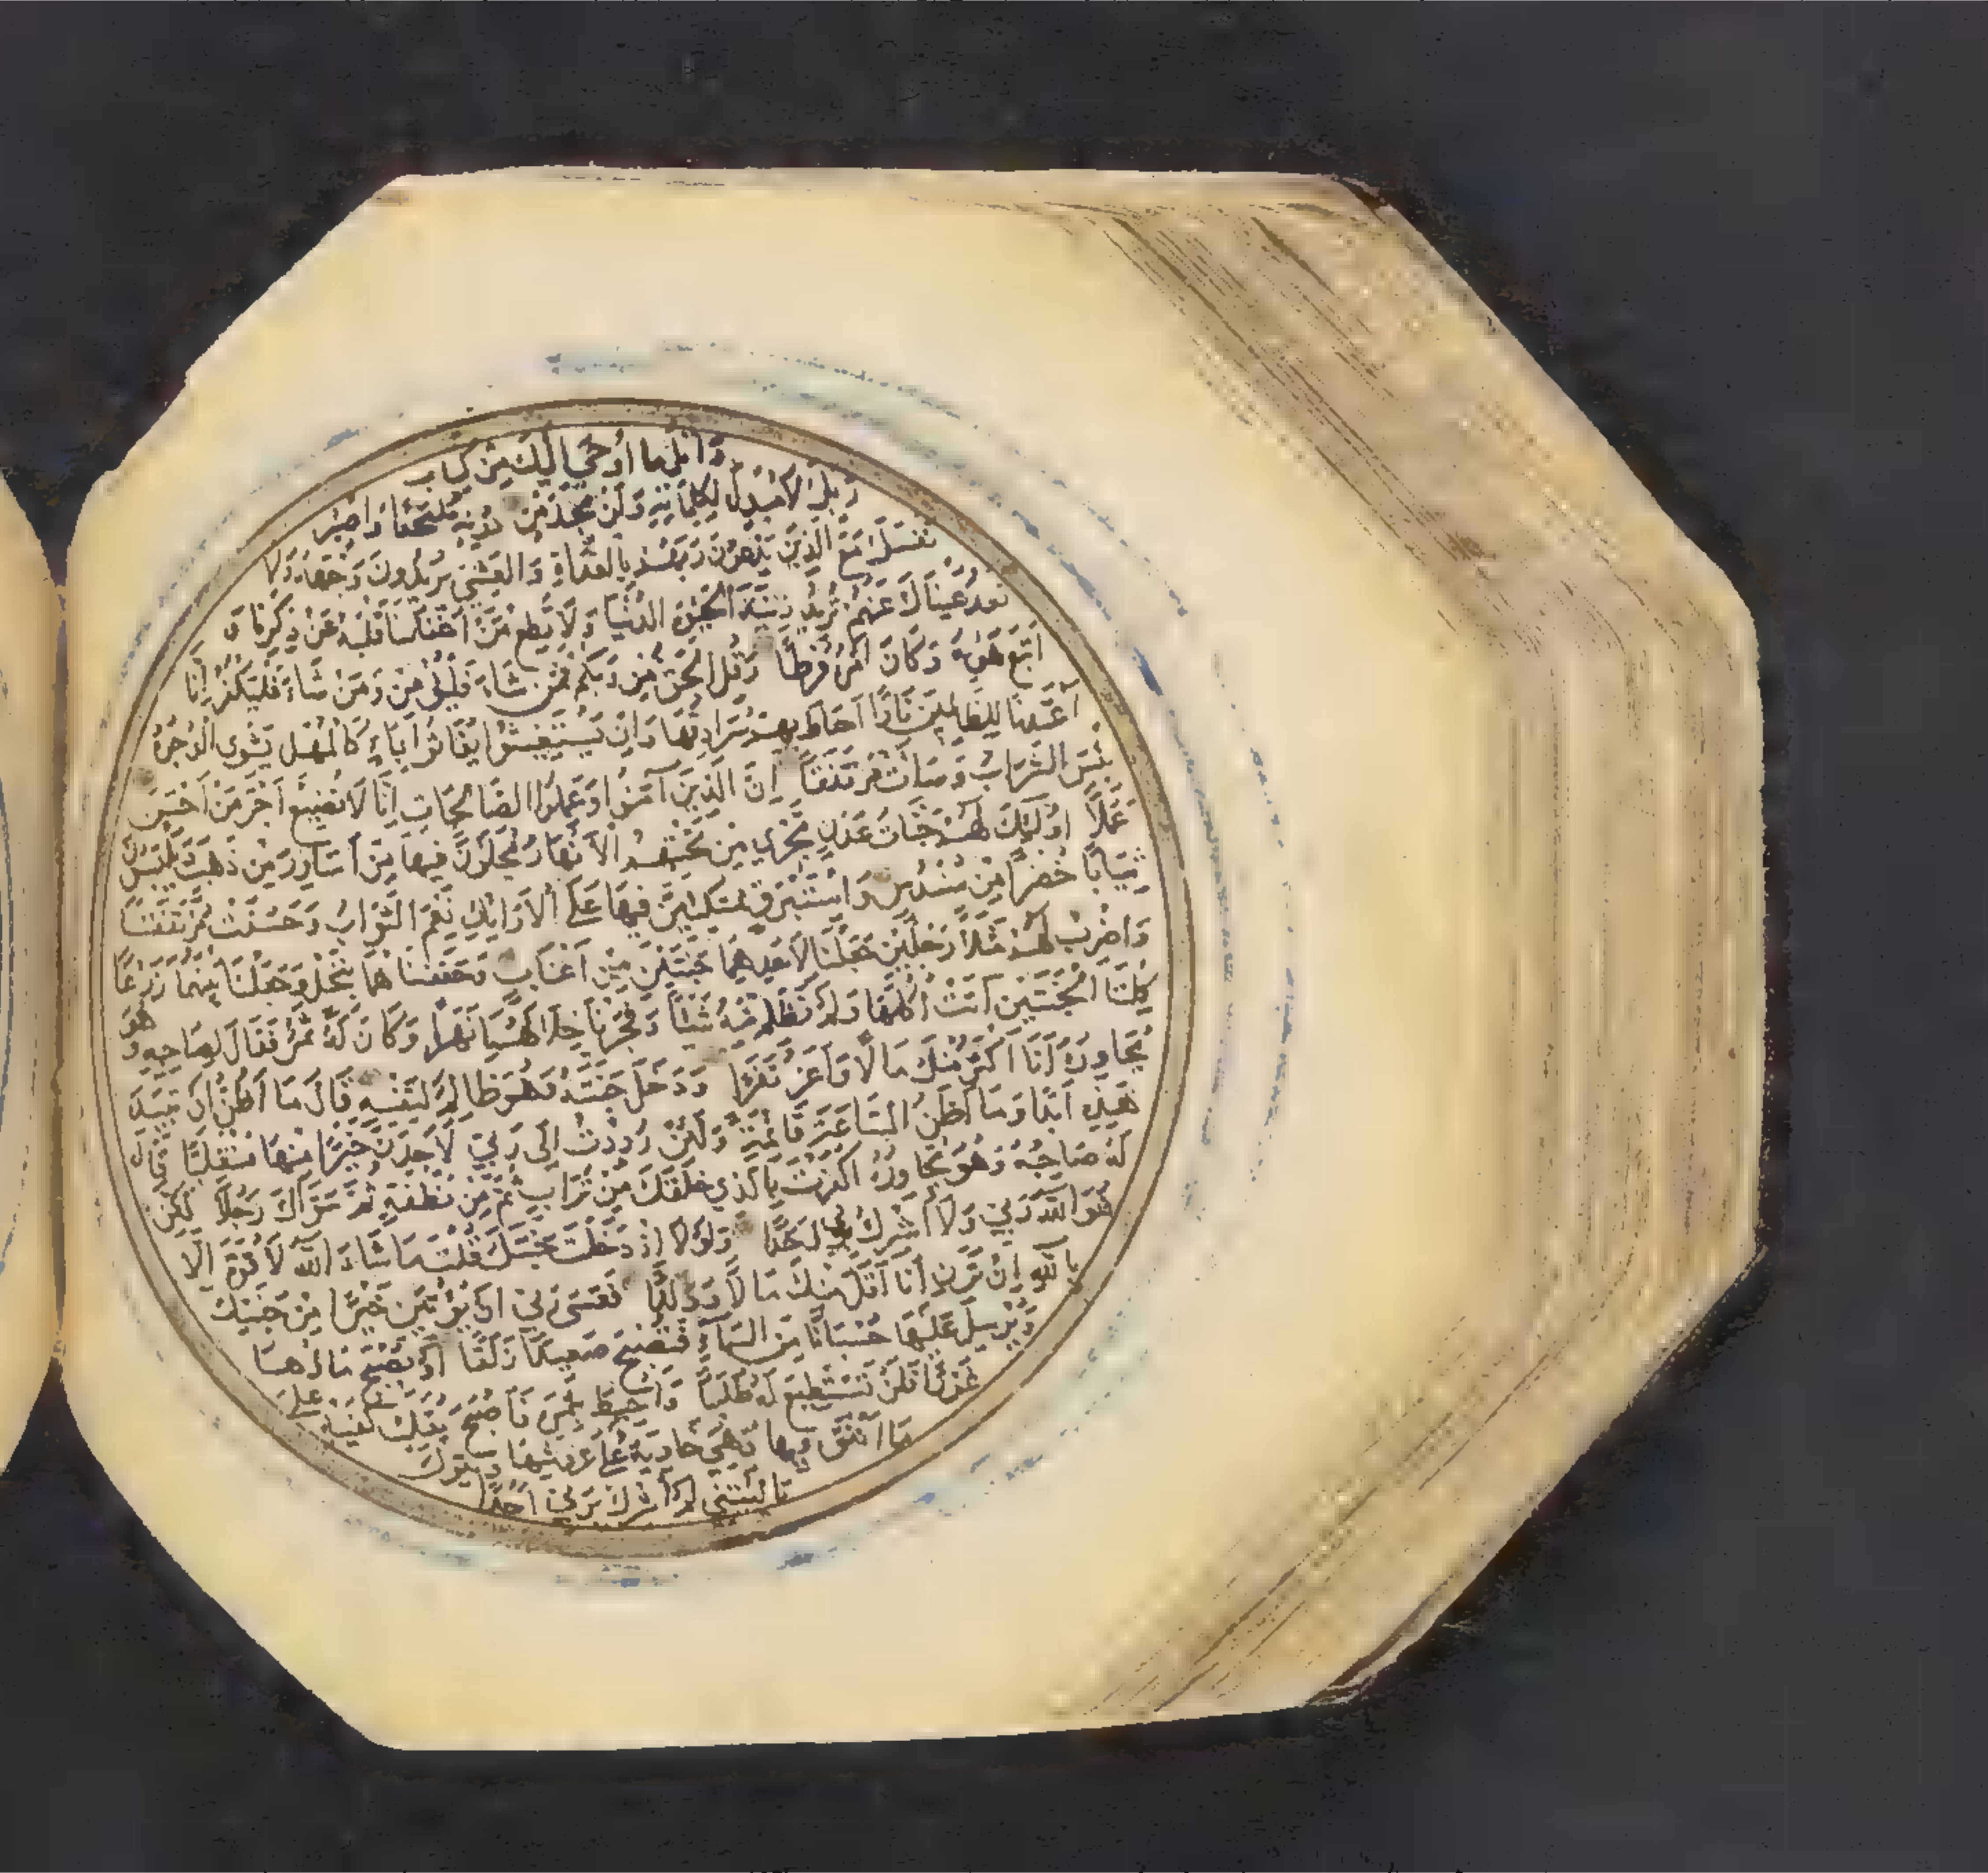 وَاتْلُ مَا أُوحِيَ إِلَيْكَ مِنْ كِتَابِ
رَبِّكَ لَا مُبَدِّلَ لِكَلِمَاتِهِ وَلَنْ تَجِدَ مِنْ دُونِهِ مُلْتَحَدًا وَاصْبِرْ
نَفْسَكَ مَعَ الَّذِينَ يَدْعُونَ رَبَّهُمْ بِالْغَدَاةِ وَالْعَشِيِّ يُرِيدُونَ وَجْهَهُ وَلَا
تَعْدُ عَيْنَاكَ عَنْهُمْ تُرِيدُ زِينَةَ الْحَيٰوةِ الدُّنْيَا وَلَا تُطِعْ مَنْ أَغْفَلْنَا قَلْبَهُ عَنْ ذِكْرِنَا وَ
اتَّبَعَ هَوٰيهُ وَكَانَ أَمْرُهُ فُرُطًا وَقُلِ الْحَقُّ مِنْ رَبِّكُمْ فَمَنْ شَاءَ فَلْيُؤْمِنْ وَمَنْ شَاءَ فَلْيَكْفُرْ إِنَّا
أَعْتَدْنَا لِلظَّالِمِينَ نَارًا أَحَاطَ بِهِمْ سُرَادِقُهَا وَإِنْ يَسْتَغِيثُوا يُغَاثُوا بِمَاءٍ كَالْمُهْلِ يَشْوِي الْوُجُوهَ
بِئْسَ الشَّرَابُ وَسَاءَتْ مُرْتَفَقًا إِنَّ الَّذِينَ آمَنُوا وَعَمِلُوا الصَّالِحَاتِ إِنَّا لَا نُضِيعُ أَجْرَ مَنْ أَحْسَنَ
عَمَلًا أُولَئِكَ لَهُمْ جَنَّاتُ عَدْنٍ تَجْرِي مِنْ تَحْتِهِمُ الْأَنْهَارُ يُحَلَّوْنَ فِيهَا مِنْ أَسَاوِرَ مِنْ ذَهَبٍ وَيَلْبَسُونَ
ثِيَابًا خُضْرًا مِنْ سُنْدُسٍ وَإِسْتَبْرَقٍ مُتَّكِئِينَ فِيهَا عَلَى الْأَرَائِكِ نِعْمَ الثَّوَابُ وَحَسُنَتْ مُرْتَفَقًا
وَاضْرِبْ لَهُمْ مَثَلًا رَجُلَيْنِ جَعَلْنَا لِأَحَدِهِمَا جَنَّتَيْنِ مِنْ أَعْنَابٍ وَحَفَفْنَاهُمَا بِنَخْلٍ وَجَعَلْنَا بَيْنَهُمَا زَرْعًا
كِلْتَا الْجَنَّتَيْنِ آتَتْ أُكُلَهَا وَلَمْ تَظْلِمْ مِنْهُ شَيْئًا وَفَجَّرْنَا خِلَالَهُمَا نَهَرًا وَكَانَ لَهُ ثَمَرٌ فَقَالَ لِصَاحِبِهِ وَهُوَ
يُحَاوِرُهُ أَنَا أَكْثَرُ مِنْكَ مَالًا وَأَعَزُّ نَفَرًا وَدَخَلَ جَنَّتَهُ وَهُوَ ظَالِمٌ لِنَفْسِهِ قَالَ مَا أَظُنُّ أَنْ تَبِيدَ
هَذِهِ أَبَدًا وَمَا أَظُنُّ السَّاعَةَ قَائِمَةً وَلَئِنْ رُدِدْتُ إِلَى رَبِّي لَأَجِدَنَّ خَيْرًا مِنْهَا مُنْقَلَبًا قَالَ
لَهُ صَاحِبُهُ وَهُوَ يُحَاوِرُهُ أَكَفَرْتَ بِالَّذِي خَلَقَكَ مِنْ تُرَابٍ ثُمَّ مِنْ نُطْفَةٍ ثُمَّ سَوَّاكَ رَجُلًا لَكِنَّ
هُوَ اللَّهُ رَبِّي وَلَا أُشْرِكُ بِرَبِّي أَحَدًا وَلَوْلَا إِذْ دَخَلْتَ جَنَّتَكَ قُلْتَ مَا شَاءَ اللَّهُ لَا قُوَّةَ إِلَّا
بِاللَّهِ إِنْ تَرَنِ أَنَا أَقَلَّ مِنْكَ مَالًا وَوَلَدًا فَعَسَى رَبِّي أَنْ يُؤْتِيَنِ خَيْرًا مِنْ جَنَّتِكَ
وَيُرْسِلَ عَلَيْهَا حُسْبَانًا مِنَ السَّمَاءِ فَتُصْبِحَ صَعِيدًا زَلَقًا أَوْ يُصْبِحَ مَاؤُهَا
غَوْرًا فَلَنْ تَسْتَطِيعَ لَهُ طَلَبًا وَأُحِيطَ بِثَمَرِهِ فَأَصْبَحَ يُقَلِّبُ كَفَّيْهِ عَلَى
مَا أَنْفَقَ فِيهَا وَهِيَ خَاوِيَةٌ عَلَى عُرُوشِهَا وَيَقُولُ
يَا لَيْتَنِي لَمْ أُشْرِكْ بِرَبِّي أَحَدًا